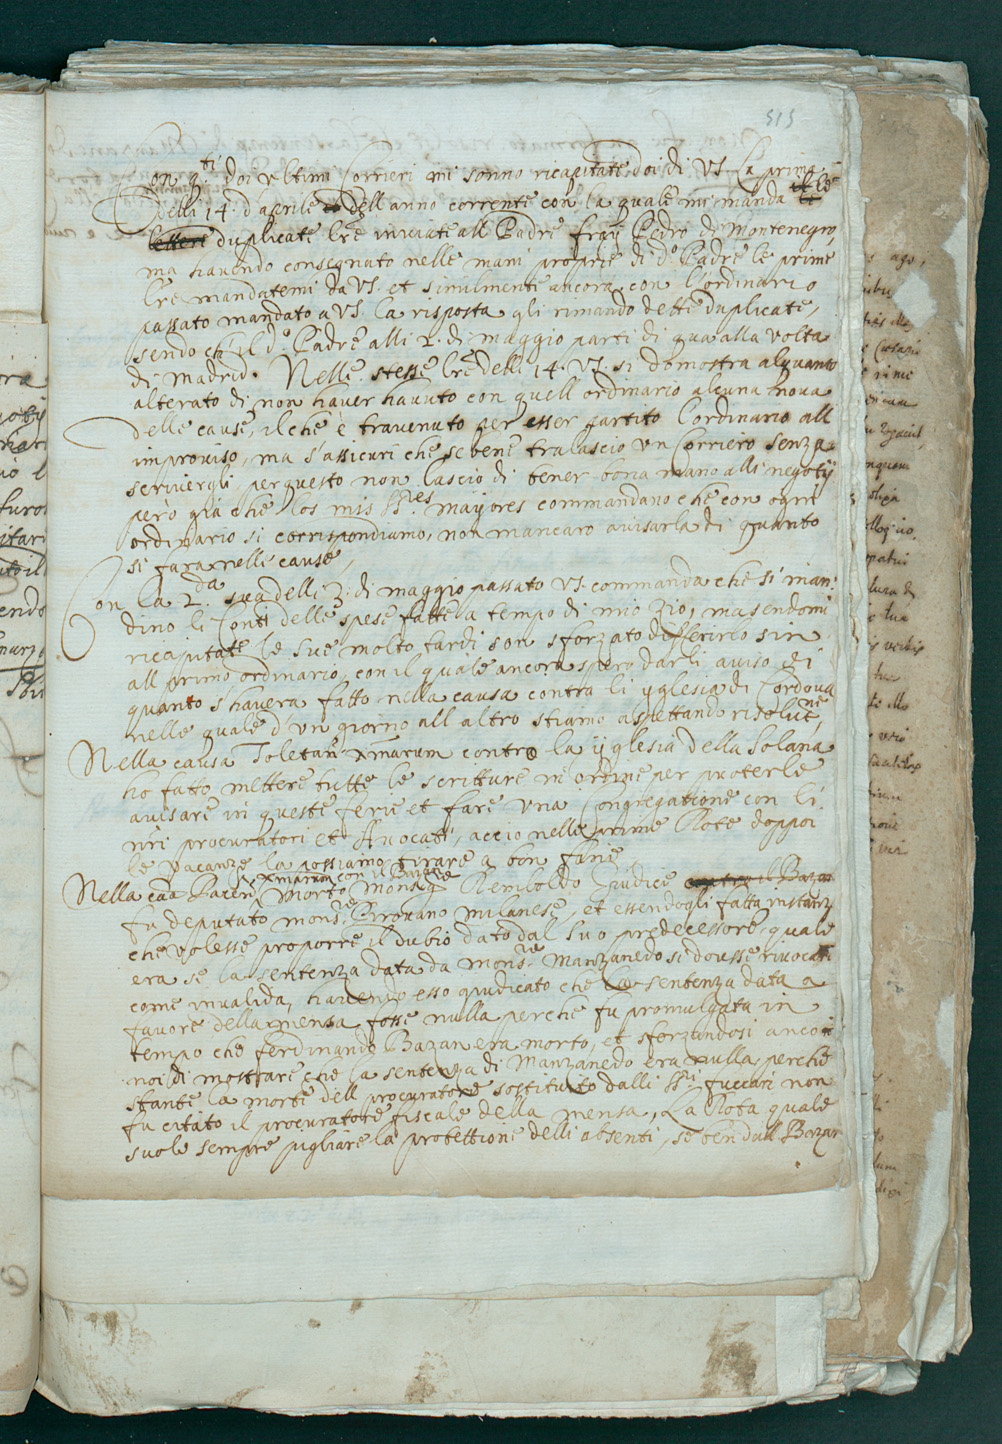 515
Con q.ti doi ultimi Corrieri mi sonno ricapitate doi di VS. La prima
delli 14. d'aprile dell anno corrente con la quale mi manda le
lettere duplicate lre inviate all Padre fray Pedro de Montenegro,
ma havendo consegnato nelle mani proprie di d.o Padre le prime
lre mandatemi da VS. et similmente ancora con l'ordinario
passato mandato a VS. la risposta gli rimando dette duplicate,
sendo che il d.o Padre alli 2. di maggio parti di qua alla volta
di Madrid. Nelle stesse lre delli 14. VS. si domostra alquanto
alterato di non haver havuto con quell ordinario alcuna nova
delle cause, il che è travenuto per esser partito l'ordinario all
improviso, ma s'assicuri che se bene tralascio un Corriero senza
scrivergli, per questo non lascio di tener bona mano alli negotij
pero già che los mis SS.res mayores commandano che con ogni
ordinario si corrispondiamo, non mancaro avisarla di quanto
si fara nelle cause,
Con la 2.da sua delli 3. di maggio passato VS. commanda che si man
dino li Conti delle spese fatte a tempo di mio zio, ma sendomi
ricapitate le sue molto tardi son sforzato differirlo sin
all primo ordinario, con il quale ancora spero darli aviso di
quanto s'havera fatto nella causa contra li yglesia di Cordova
nelle quale d'un giorno all altro stiamo aspettando risolut.ne,
Nella causa Toletan xmarum contro la yglesia della Solana
ho fatto mettere tutte le scritture in ordine per poterle
avisare in queste ferie et fare una Congregatione con li
nri procuratori et Avocati, accio nelle prime Rote doppoi
le vacanze la possiamo tirare a bon fine
xmarum con il Bazan
Nella caa Pacen morto Mons.re Remboldo Giudice contra il Bazan
fu deputato mons.re Pirovano milanese, et essendogli fatta instanza
che volesse proporre il dubio dato dal suo predecessore, quale
era se la sentenza data da mons.re Manzanedo si dovesse rivocare
come invalida, havendo esso giudicato che la sentenza data a
favore della mensa fosse nulla perche fu promulgata in
tempo che ferdinando Bazan era morto, et sforzandosi ancor
noi di mostrare che la sentenza di Manzanedo era nulla, perche
stante la morte dell procuratore sostituto dalli SS.ri fuccari non
fu citato il procuratore fiscale della mensa, La Rota quale
suole sempre pigliare la protettione delli absenti, se ben dall Bazan